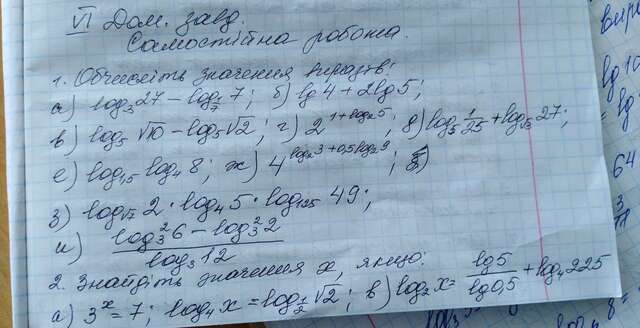 VI Дом. завд.
Самостійна робота.
1. Обчисліть значення виразів:
а) log₃27 – log_{1/7} 7; б) lg 4 + 2lg 5;
в) log₅ √10 – log₅√2; г) 2^{1+log₂5}; д) log₅ 1/25 + log_{√3} 27;
е) log_{1,5} log₄ 8; ж) 4^{log₂3+0,5log₂9};
з) log_{√7} 2 · log₄ 5 · log₁₂₅ 49;
и) (log₃²6 – log₃²2)/(log₃12)
2. Знайдіть значення x, якщо:
а) 3^x = 7; log₄x = log_{1/2}√2; в) log₂x = lg5/lg0,5 + log₄225
lg 10
64